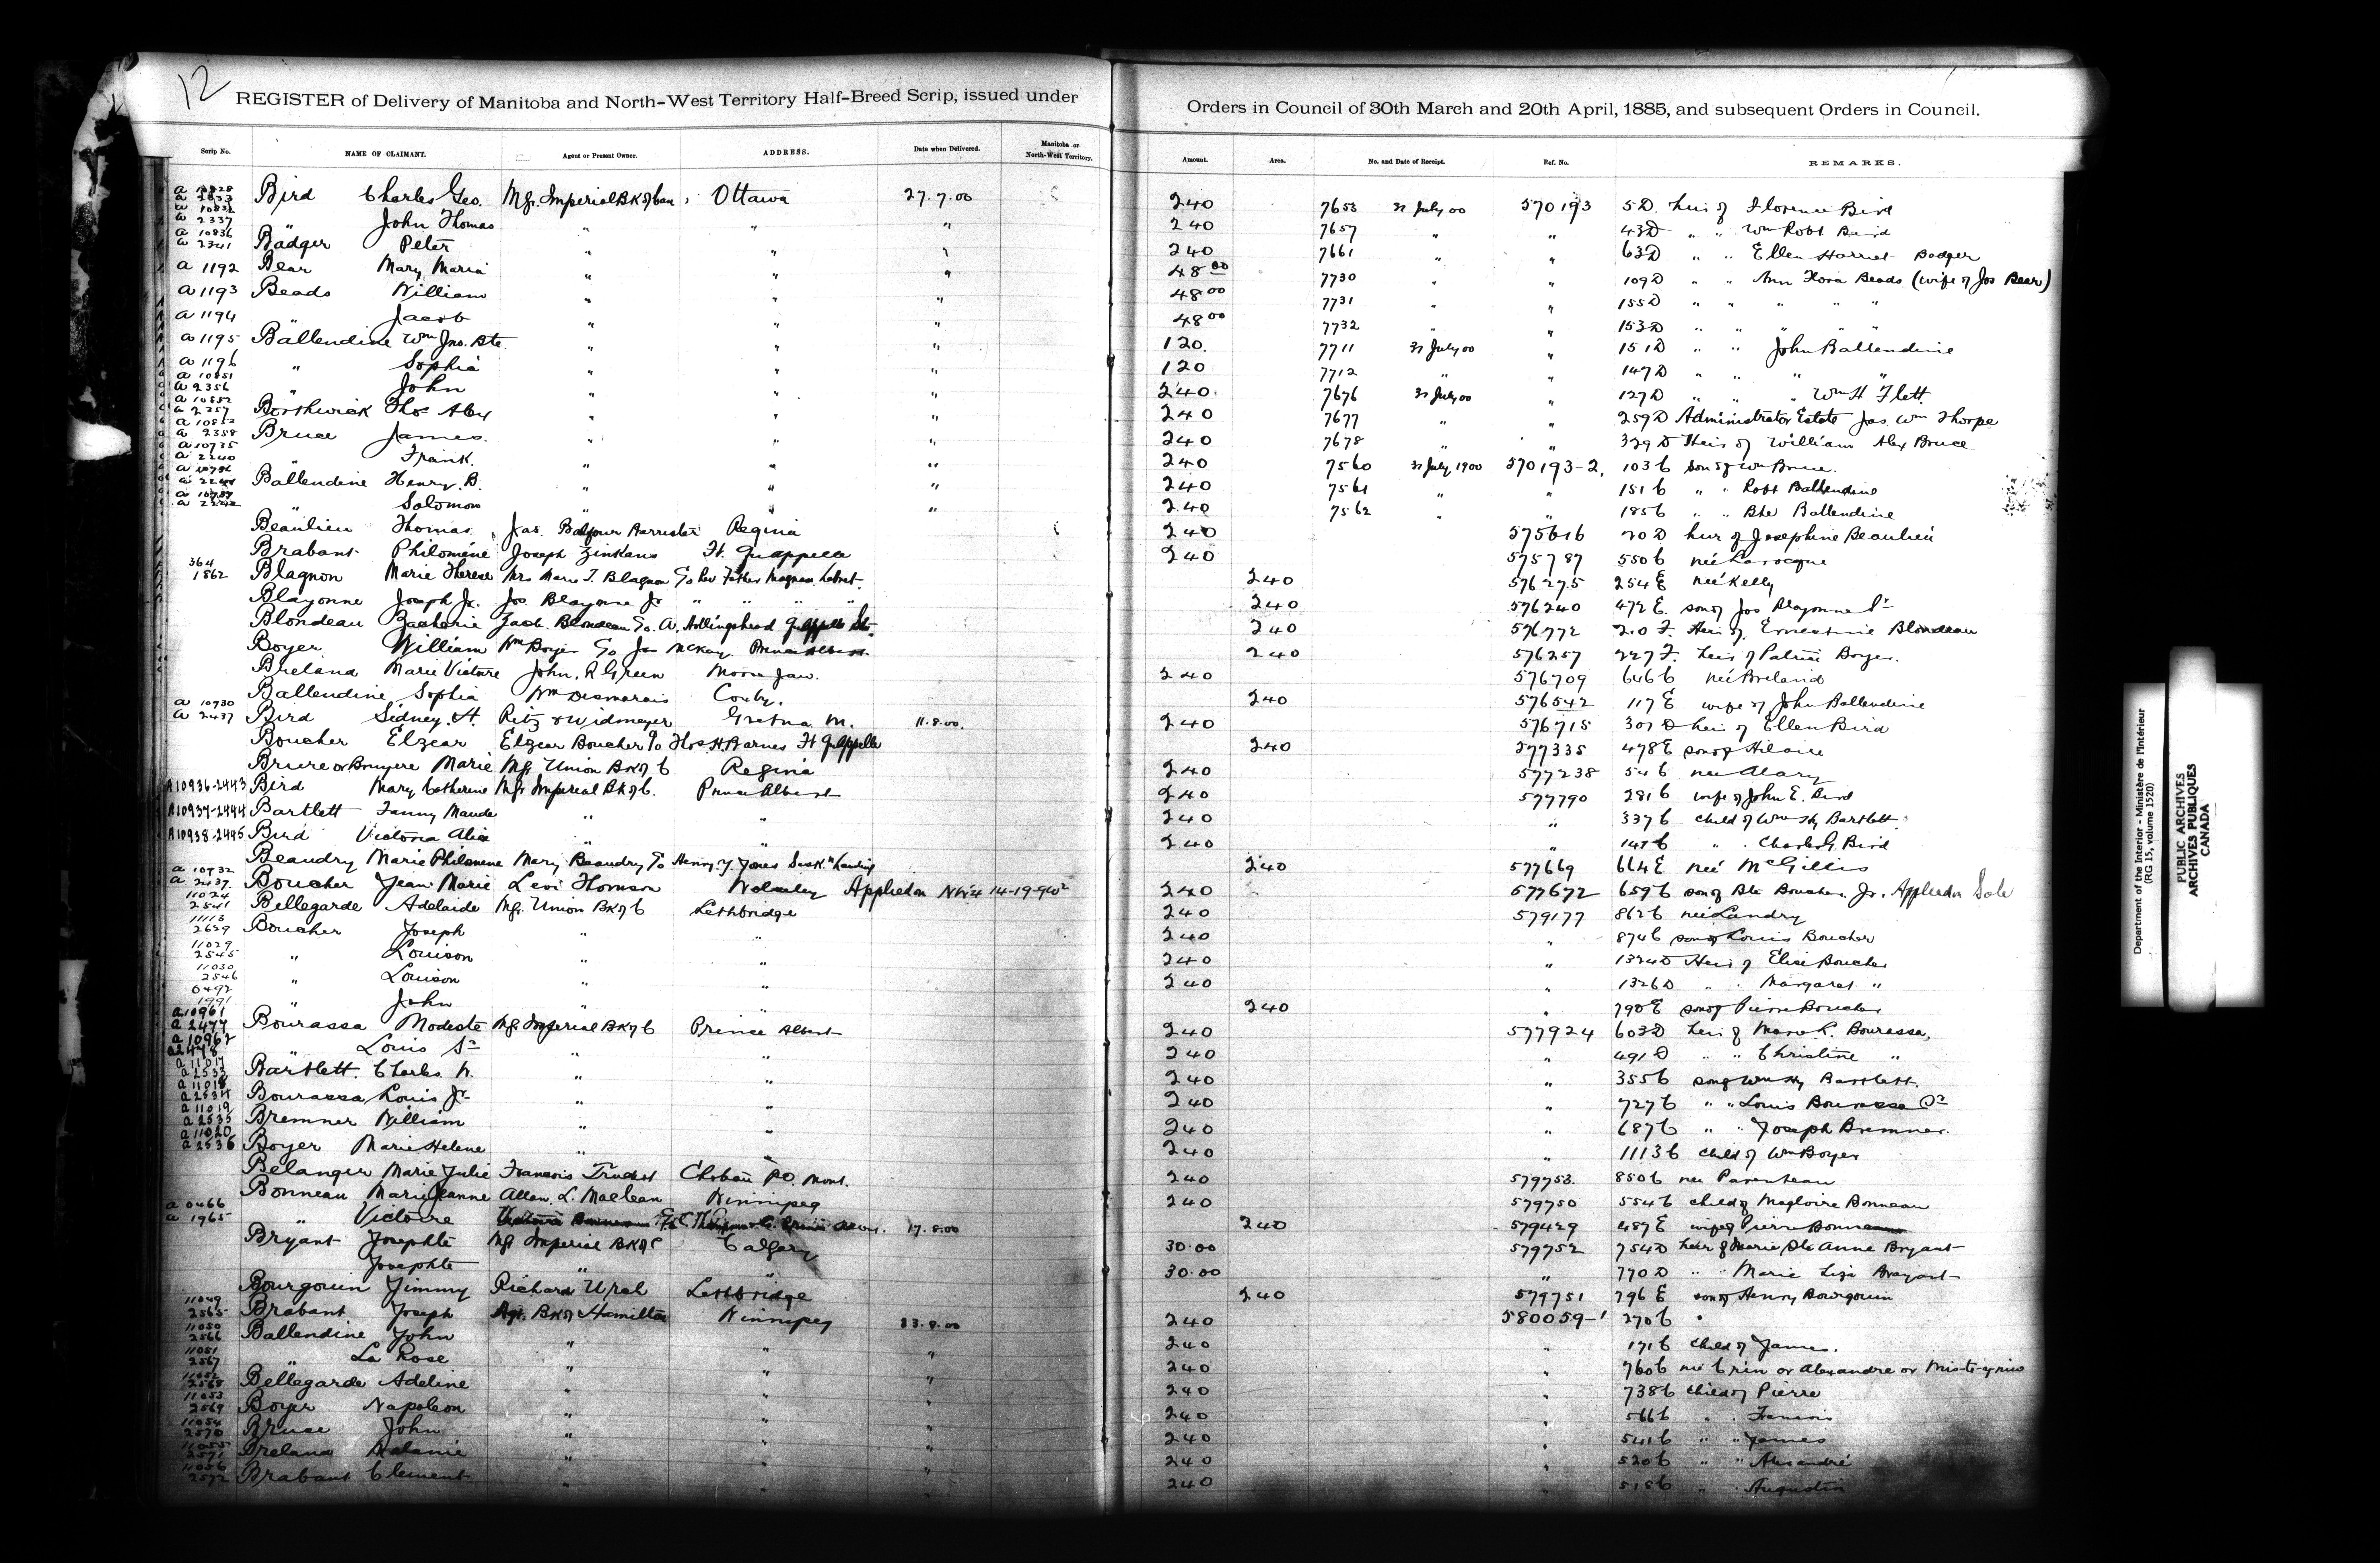 12
REGISTER of Delivery of Manitoba and North-West Territory Half-Breed Scrip, issued under Orders in Council of 30th March and 20th April, 1885, and subsequent Orders in Council.
Scrip No. NAME OF CLAIMANT. Agent or Present Owner. ADDRESS. Date when Delivered. Manitoba or North-West Territory. Amount. Area. No. and Date of Receipt. Ref. No. REMARKS.
Bird Charles Geo. Mgr. Imperial Bk of Can Ottawa 27.7.00 240 7653 31 July 00 570193 5 D. heir of Florence Bird
a 2337 " John Thomas " " " 240 7657 " " 43 D " " Wm Robt Bird
a 10836 a 2341 Badger Peter " " " 240 7661 " " 63 D " " Ellen Harriet Badger
a 1192 Bear Mary Maria " " " 48 00 7730 " " 109 D " " Ann Flora Beads (wife of Jos Bear)
a 1193 Beads William " " " 48 00 7731 " " 155 D " " " " "
a 1194 " Jacob " " " 48 00 7732 " " 153 D " " " " "
a 1195 Ballendine Wm Jno. Bte. " " " 120. 7711 31 July 00 " 151 D " " John Ballendine
a 1196 " Sophia " " " 120 7712 " " 147 D " " " "
a 10851 a 2356 " John " " " 240. 7676 31 July 00 " 127 D " " Wm H. Flett
a 10852 a 2357 Borthwick Thos Alex " " " 240 7677 " " 259 D Administrator Estate Jas. Wm Thorpe
a 10853 a 2358 Bruce James. " " " 240 7678 " " 329 D Heir of William Alex Bruce
a 10735 a 2240 " Frank. " " " 240 7560 31 July 1900 570193-2. 103 C son of Wm Bruce.
a 10736 Ballendine Henry B. " " " 240 7561 " " 151 C " " Robt Ballendine
a 10737 " Solomon " " " 240 7562 " " 185 C " " Bte Ballendine
Beaulieu Thomas Jas. Balfour Barrister Regina 240 575616 20 D heir of Josephine Beaulieu
Brabant Philoméne Joseph Zinkans Ft. Quappelle 240 575787 550 C née Larocque
364 1862 Blagnon Marie Therese Mrs Marie T. Blagnon C/o Rev Father Magnan Lebret 240 576275 254 E née Kelly
Blayonne Joseph Jr. Jos Blayonne Jr " " " " 240 576240 472 E. son of Jos Blayonne Sr
Blondeau Zacharie Zach. Blondeau C/o A. Hollingshead Quappelle Stn. 240 576772 210 F. Heir of Ernestine Blondeau
Boyer William Wm Boyer C/o Jas McKay Prince Albert. 240 576257 227 F. heir of Patrice Boyer.
Breland Marie Victoire John. R Green Moose Jaw. 240 576709 646 C née Breland
Ballendine Sophia Wm Desmarais 240 576542 117 E wife of John Ballendine
a 10930 a 2437 Bird Sidney. H. Ritz & Widmeyer Gretna M. 11.8.00. 240 576715 307 D heir of Ellen Bird
Boucher Elzear Elzear Boucher C/o Thos H. Barnes Ft Quappelle 240 577335 478 E son of Hilaire
Bruere or Bruyere Marie Mgr Union Bk of C Regina 240 577238 54 C née Alary
A10936-2443 Bird Mary Catherine Mgr Imperial Bk of C. Prince Albert 240 577790 281 C wife of John E. Bird
A10937-2444 Bartlett Fanny Maude " " 240 " 337 C child of Wm Hy Bartlett
A10938-2445 Bird Victoria Alice " " 240 " " Charles G. Bird
Beaudry Marie Philomene Mary Beaudry C/o Henry Y. Jones Sask. Landing 240 577669 664 E née McGillis
a 10932 Boucher Jean Marie Levi Thomson Wolseley Applied on NW4 14-19-9 W2 240 577672 659 C son of Bte Boucher Jr. Applied on Sale
11024 2541 Bellegarde Adelaide Mgr. Union Bk of C Lethbridge 240 579177 862 C née Landry
11113 2629 Boucher Joseph " " 240 " 874 C son of Louis Boucher
11029 2545 " Louison " " 240 " 1324 D Heir of Elise Boucher
11030 2546 " Louison " " 240 " 1326 D " " Margaret "
0492 1991 " John " " 240 " 790 E son of Pierre Boucher
a10961 a 2477 Bourassa Modeste Mgr Imperial Bk of C Prince Albert 240 577924 603 D heir of Marie R. Bourassa
a 10962 a2478 " Louis Sr " " 240 " 491 D " " Christine "
a 11017 a 2533 Bartlett. Charles W. " " 240 " 355 C son of Wm Hy Bartlett.
a 11018 a 2534 Bourassa Louis Jr. " " 240 " 727 C " " Louis Bourassa Sr
a 11019 a 2535 Bremner William " " 240 " 687 C " " Joseph Bremner.
a 11020 a 2536 Boyer Marie Helene " " 240 " 1113 C child of Wm Boyer
Belanger Marie Julie Francois Trudest P.O. Mont. 240 579753. 850 C née Parenteau
Bonneau Marie Jeanne Allan. L. Maclean Winnipeg 240 579750 554 C child of Magloire Bonneau
a 0466 a 1965 " Victoire 17.8.00 240 579429 487 E wife of Pierre Bonneau
Bryant Josephte Mgr Imperial Bk of C Calgary 30.00 579752 754 D heir of Marie Ste Anne Bryant
Josephte " " 30.00 " 770 D " " Marie Liza Bryant
Bourgouin Jimmy Richard Urch Lethbridge 240 579751 796 E son of Henry Bourgouin
11049 2565 Brabant Joseph Mgr. Bk of Hamilton Winnipeg 23.8.00 240 580059-1 270 C "
11050 2566 Ballendine John " " " 240 " 171 C child of James.
11051 2567 " La Rose " " " 240 " 760 C née Crin or Alexandre or
11052 2568 Bellegarde Adeline " " " 240 " 738 C child of Pierre
11053 2569 Boyer Napoleon " " " 240 " 566 C " " Francois
11054 2570 Bruce John " " " 240 " 541 C " " James
11055 2571 Breland Melanie " " " 240 " 520 C " " Alexandre
11056 2572 Brabant Clement " " " 240 " 515 C " " Augustin
Department of the Interior - Ministère de l'Intérieur
(RG 15, volume 1520)
PUBLIC ARCHIVES
ARCHIVES PUBLIQUES
CANADA